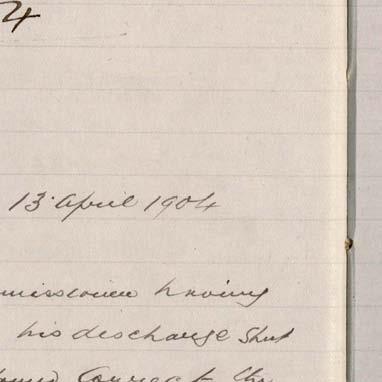 4
13 April 1904
missioner having
his discharge Shut
correct the